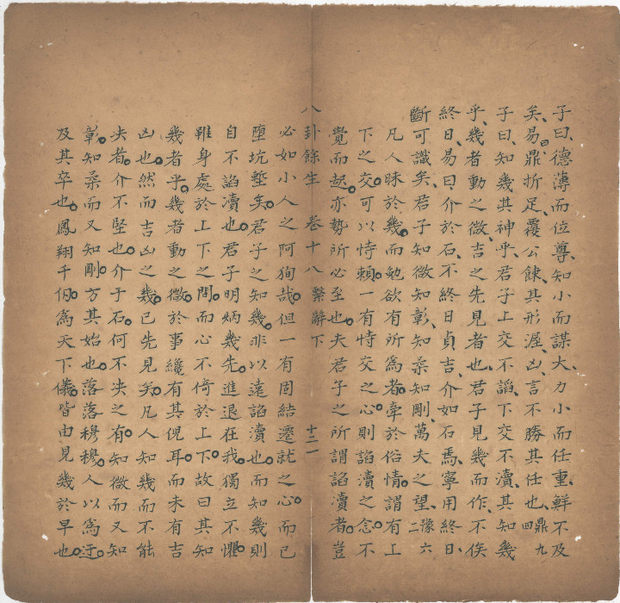 子曰、德薄而位尊、知小而謀大、力小而任重、鮮不及
矣、易曰鼎折足、覆公餗、其形渥、凶、言不勝其任也、鼎九四
子曰、知幾其神乎、君子上交不諂、下交不瀆、其知幾
乎、幾者動之微、吉之先見者也、君子見幾而作、不俟
終日、易曰、介於石、不終日貞吉、介如石焉、寧用終日、
斷可識矣、君子知微知彰、知柔知剛、萬夫之望、豫六二
凡人昧於幾。而勉欲有所為者。牽於俗情。謂有上
下之交。可以恃賴。一有恃交之心。則諂瀆之念。不
覺而起。亦勢所必至也。夫君子之所謂諂瀆者。豈
八卦餘生 卷十八 繫辭下 十二
必如小人之阿狥哉。但一有固結遷就之心。而已
墮坑塹矣。君子之知幾。非以遠諂瀆也。而知幾則
自不諂瀆也。君子明炳幾先。進退在我。獨立不懼。
雖身處於上下之間。而心不倚於上下。故曰其知
幾者乎。幾者動之微。於事纔有其倪耳。而未有吉
凶也。然而吉凶之幾。已先見矣。凡人知幾而不能
夬者。介不堅也。介于石。何不夬之有。知微而又知
彰。知柔而又知剛。方其始也。落落穆穆。人以為迂。
及其卒也。鳳翔千仞。為天下儀。皆由見幾於早也。